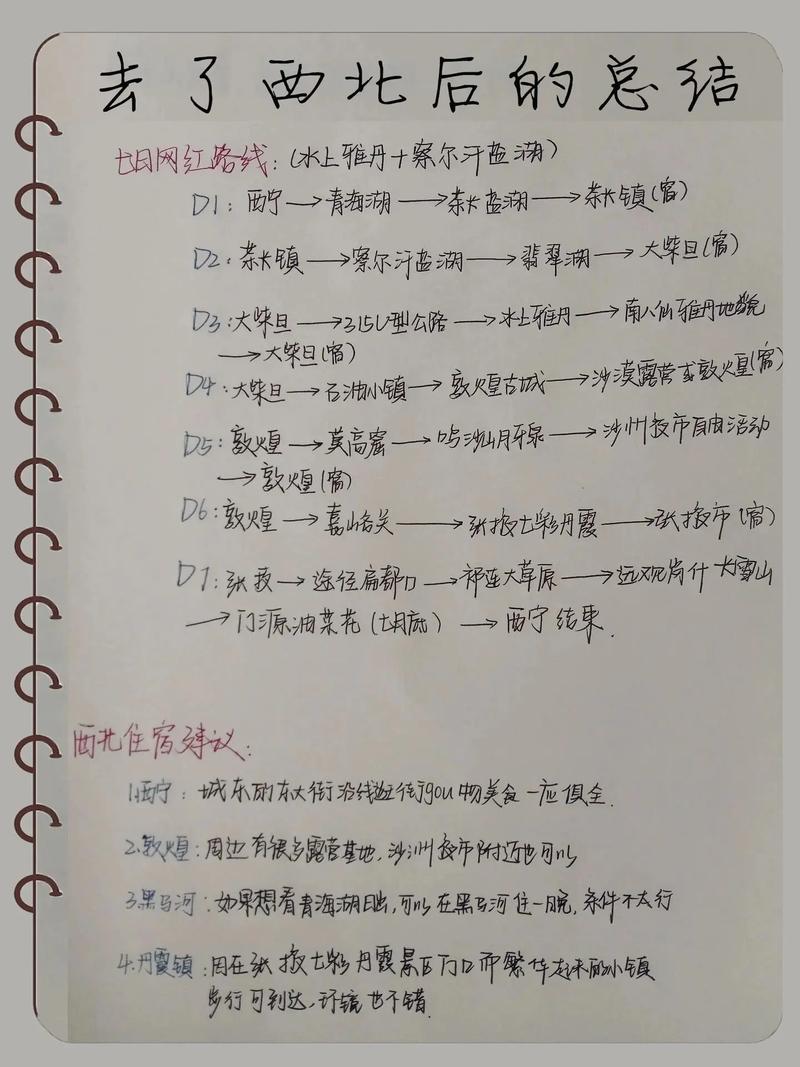 去了西北后的总结
七日网红路线:(水上雅丹+察尔汗盐湖)
D1:西宁→青海湖→茶卡盐湖→茶卡镇(宿)
D2:茶卡镇→察尔汗盐湖→翡翠湖→大柴旦(宿)
D3:大柴旦→315U型公路→水上雅丹→南八仙雅丹地貌
→大柴旦(宿)
D4:大柴旦→石油小镇→敦煌古城→沙漠露营或敦煌(宿)
D5:敦煌→莫高窟→鸣沙山月牙泉→沙州夜市自由活动
→敦煌(宿)
D6:敦煌→嘉峪关→张掖七彩丹霞→张掖市(宿)
D7:张掖→途径扁都口→祁连大草原→远观岗什卡雪山
→门源油菜花(七月底)→西宁结束.
西北住宿建议:
1.西宁:城东的东大街沿线逛街gou物美食一应俱全.
2.敦煌:周边有很多露营基地,沙洲夜市附近也可以
3.黑马河:如果想看青海湖日出,可以在黑马河住一晚,条件不太行
4.丹霞镇:因在张掖七彩丹霞景区门口而繁华起来的小镇
步行可到达,环境也不错.